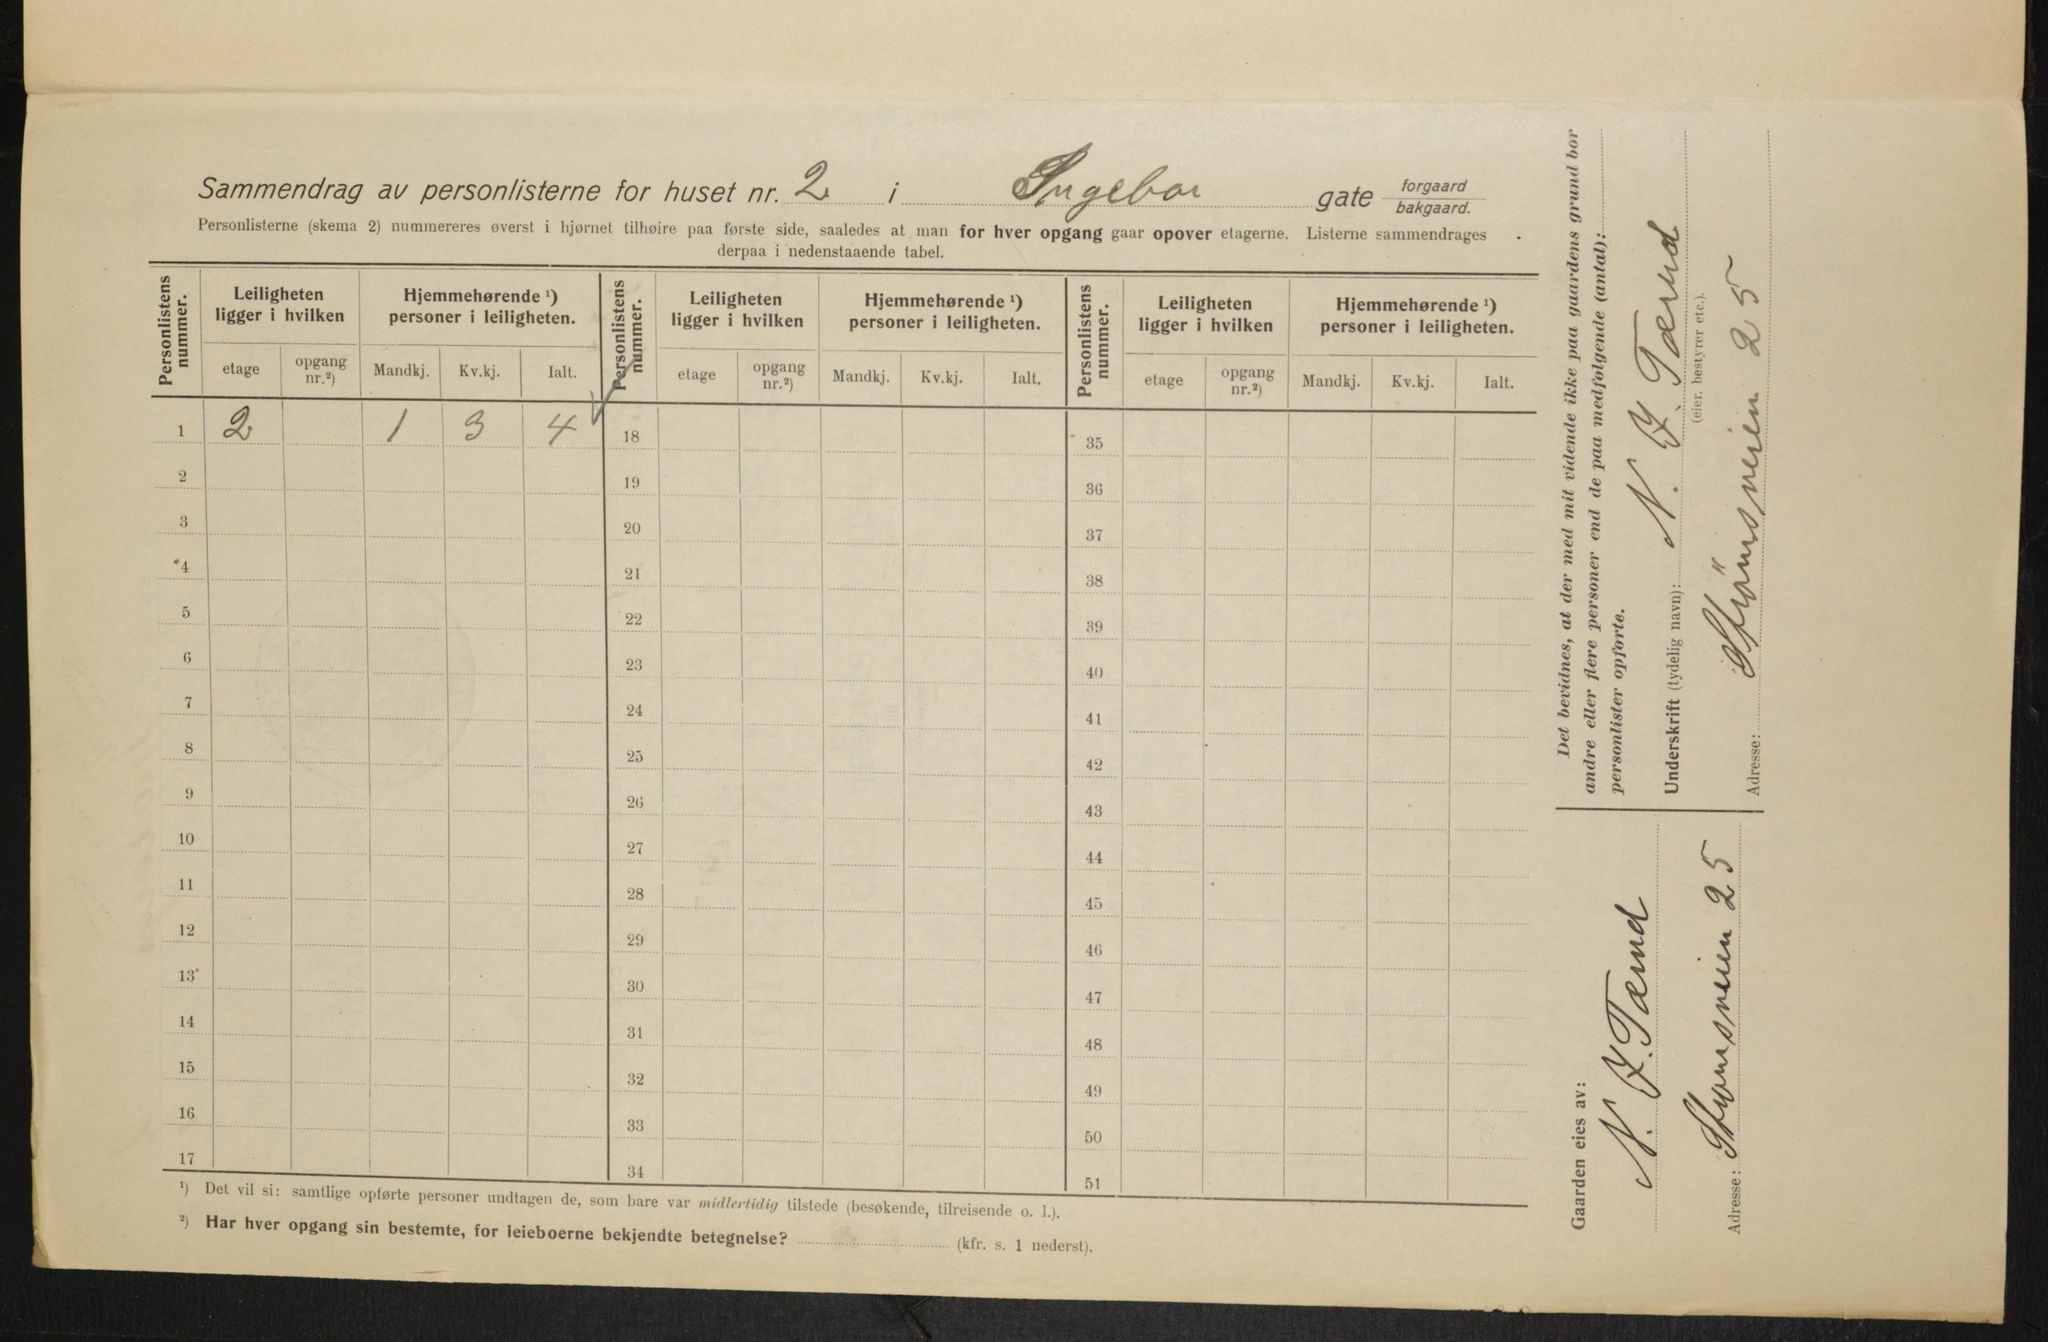 Sammendrag av personlisterne for huset nr. 2 i Ingebor gate forgaard bakgaard.
Personlisterne (skema 2) nummereres øverst i hjørnet tilhøire paa første side, saaledes at man for hver opgang gaar opover etagerne. Listerne sammendrages
derpaa i nedenstaaende tabel.
Personlistens nummer. Leiligheten ligger i hvilken Hjemmehørende ¹) personer i leiligheten. Personlistens nummer. Leiligheten ligger i hvilken Hjemmehørende ¹) personer i leiligheten. Personlistens nummer. Leiligheten ligger i hvilken Hjemmehørende ¹) personer i leiligheten.
etage opgang nr.²) Mandkj. Kv.kj. Ialt. etage opgang nr.²) Mandkj. Kv.kj. Ialt. etage opgang nr.²) Mandkj. Kv.kj. Ialt.
1 2 1 3 4 18 35
2 19 36
3 20 37
4 21 38
5 22 39
6 23 40
7 24 41
8 25 42
9 26 43
10 27 44
11 28 45
12 29 46
13 30 47
14 31 48
15 32 49
16 33 50
17 34 51
¹) Det vil si: samtlige opførte personer undtagen de, som bare var midlertidig tilstede (besøkende, tilreisende o. l.).
²) Har hver opgang sin bestemte, for leieboerne bekjendte betegnelse? (kfr. s. 1 nederst).
Det bevidnes, at der med mit vidende ikke paa gaardens grund bor
andre eller flere personer end de paa medfølgende (antal):
personlister opførte.
Underskrift (tydelig navn): N. J. Tærud
(eier, bestyrer etc.).
Adresse: Strømsveien 25
Gaarden eies av:
N. J. Tærud
Adresse: Strømsveien 25